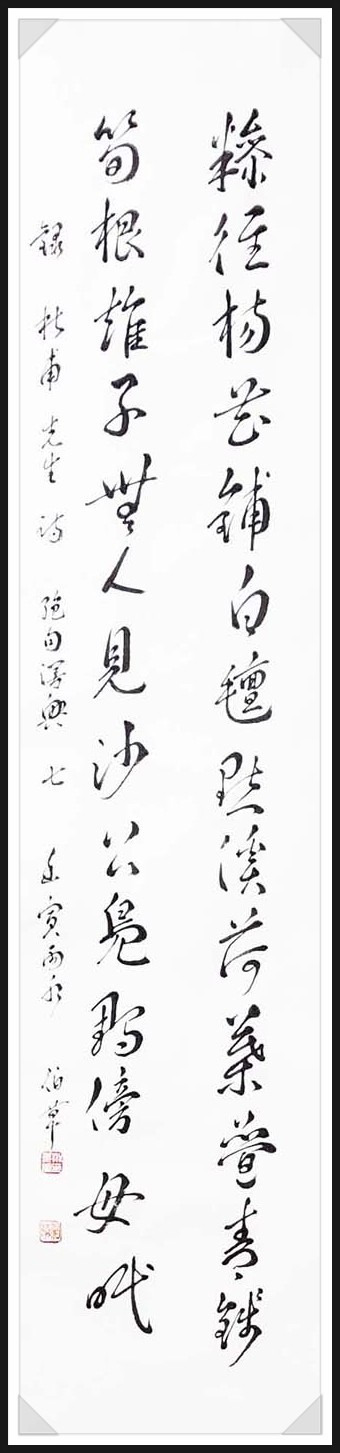 糝徑楊花鋪白氈點溪荷葉疊青錢
筍根雉子無人見沙上鳧雛傍母眠
錄 杜甫先生詩 絕句漫興 七 壬寅雨水 伯